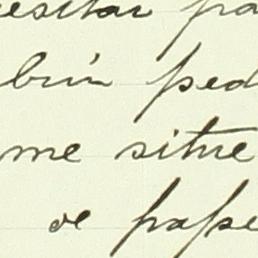 esitar pa
brir ped
me sitúe
de pape